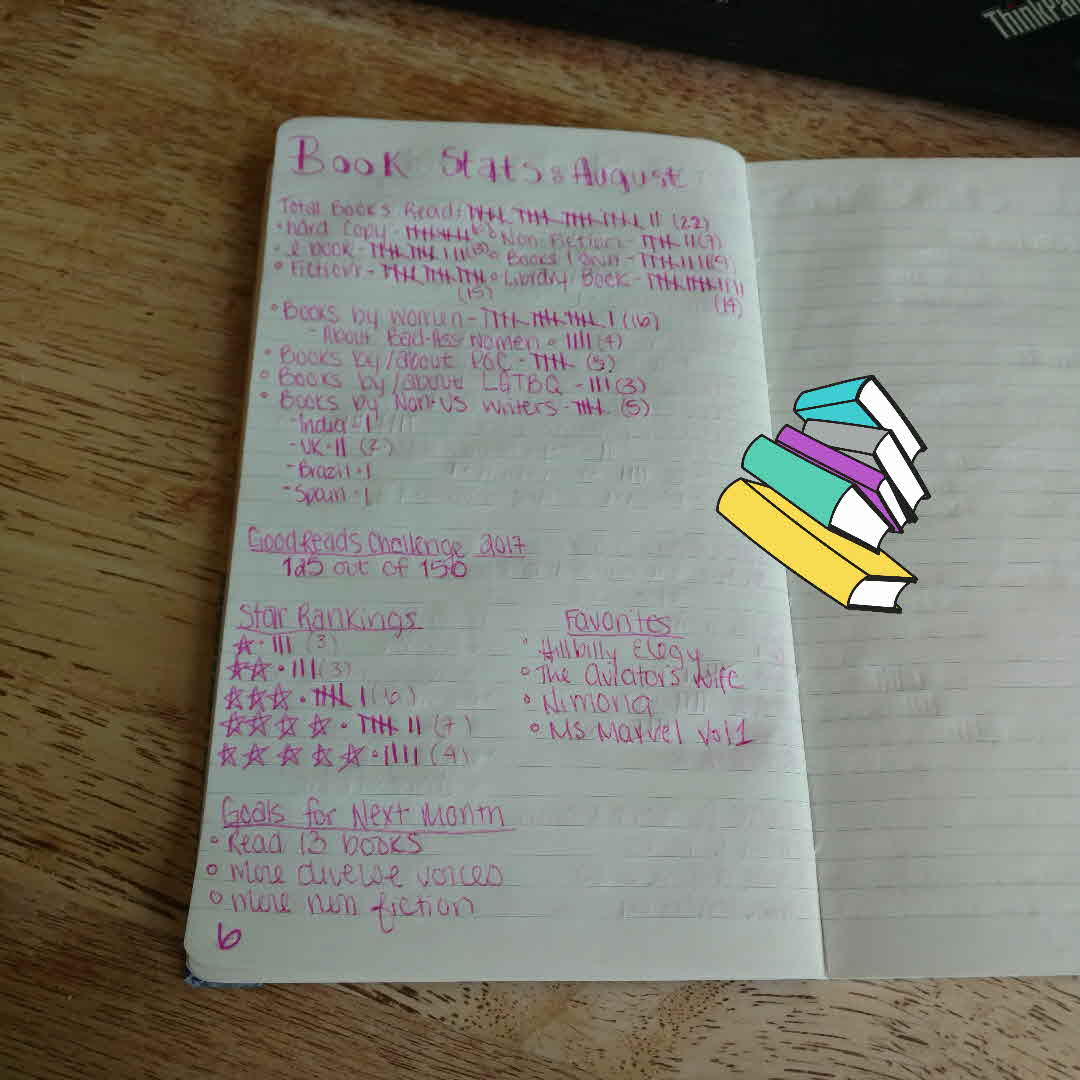 ThinkPa
Book Stats: August
Total Books Read: 𝍸 𝍸 𝍸 𝍸 || (22)
• hard copy - • Non Fiction - 𝍸 || (7)
• e book - 𝍸 𝍸 ||| (13) • Books I Own - 𝍸 |||
• Fiction - 𝍸 𝍸 𝍸 • Library Book - 𝍸 𝍸 ||||
(15) (14)
• Books by women - 𝍸 𝍸 𝍸 | (16)
- About Bad-Ass Women • |||| (4)
• Books by/about POC - 𝍸 (5)
• Books by/about LGTBQ - ||| (3)
• Books by Non-US writers - 𝍸 (5)
- India - |
- UK - || (2)
- Brazil - |
- Spain - |
GoodReads Challenge 2017
125 out of 150
Star Rankings
☆ • ||| (3)
☆☆ • ||| (3)
☆☆☆ • 𝍸 | (6)
☆☆☆☆ • 𝍸 || (7)
☆☆☆☆☆ • |||| (4)
Favorites
• Hillbilly Elegy
• The Aviator's Wife
• Nimona
• Ms Marvel Vol 1
Goals for Next Month
• Read 13 books
• more diverse voices
• more non fiction
6